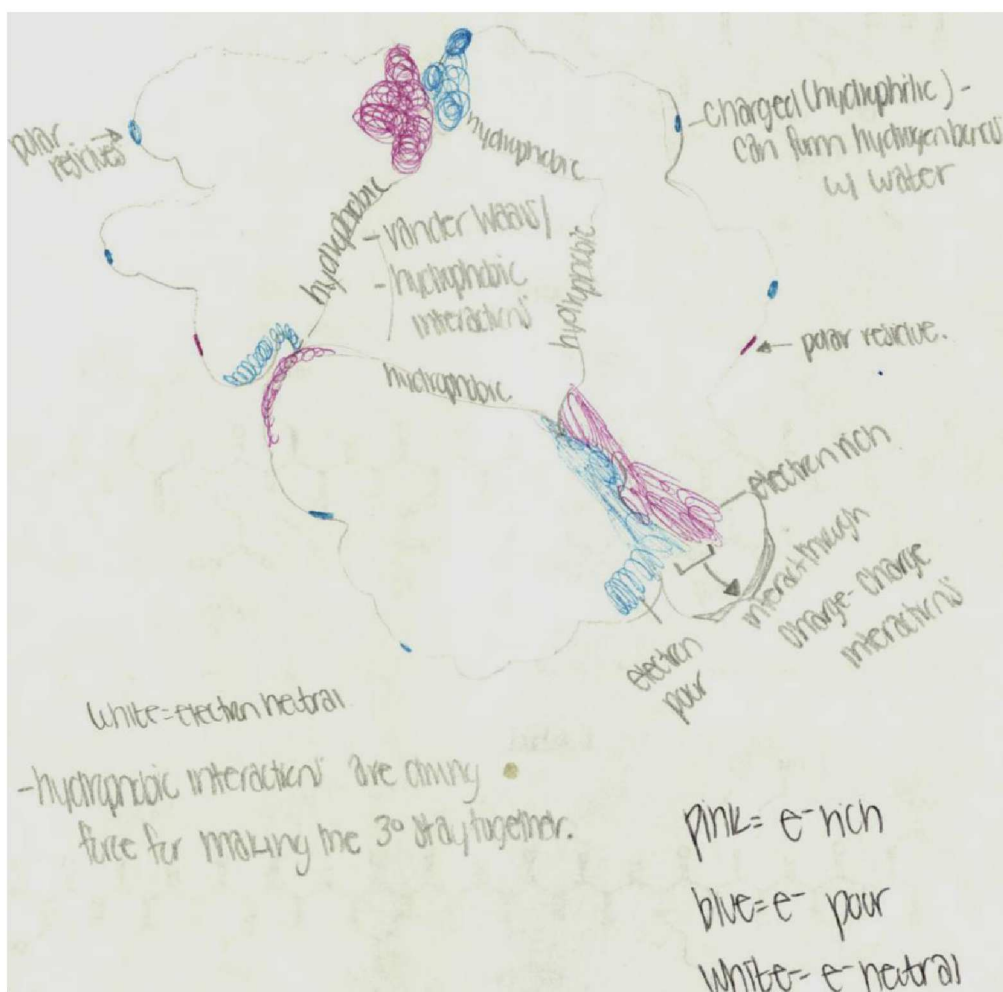 polar
residues
hydrophobic
-charged (hydrophilic) -
can form hydrogen bonds
w/ water
hydrophobic
-vander Waals/
-hydrophobic
interactions
hydrophobic
hydrophobic
polar residue.
electron rich
interact through
charge-charge
interactions
electron
pour
white=electron neutral
-hydrophobic interactions are driving
force for making the 3° stay together.
pink= e⁻ rich
blue= e⁻ pour
white= e⁻ neutral